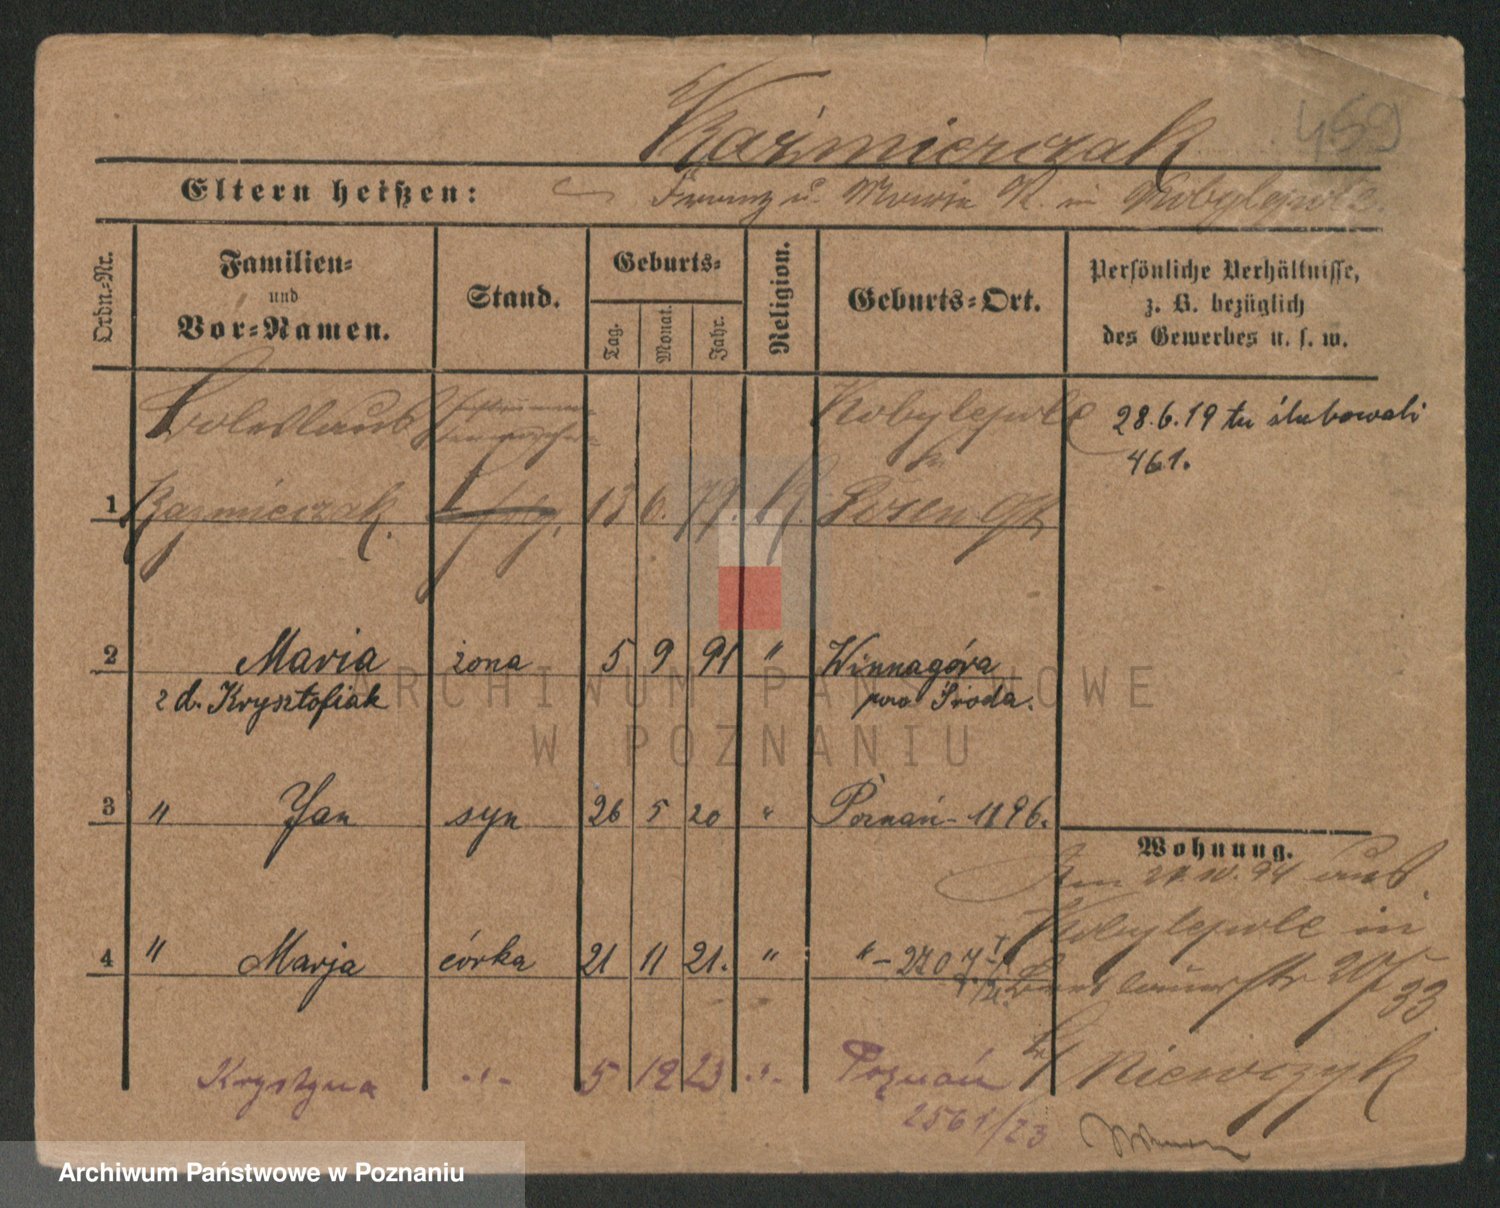 Kaźmierczak 459
Eltern heißen: Franz u. Maria K. in Kobylepole.
Ordn.-Nr.
Familien-
und
Vor-Namen.
Stand.
Geburts-
Tag. Monat. Jahr.
Religion.
Geburts-Ort.
Persönliche Verhältnisse,
z. B. bezüglich
des Gewerbes u. s. w.
Boleslaus Kobylepole 28.6.19 tu ślubowali
461.
1 Kazmierczak. 13 6. 79. K. Posen Ost
2 Maria żona 5 9 91 " Winnagóra
z d. Krysztofiak pow Środa.
3 " Jan syn 26 5 20 " Poznań - 1196.
Wohnung.
Am 21.10.94 aus
4 " Marja córka 21 11 21. " " - 2707
Kobylepole in
Breslauerstr 20/
33
Krystyna -"- 5 12 23 -"- Poznań
2561/23
b/ Niewczyk
ARCHIWUM PAŃSTWOWE
W POZNANIU
Archiwum Państwowe w Poznaniu